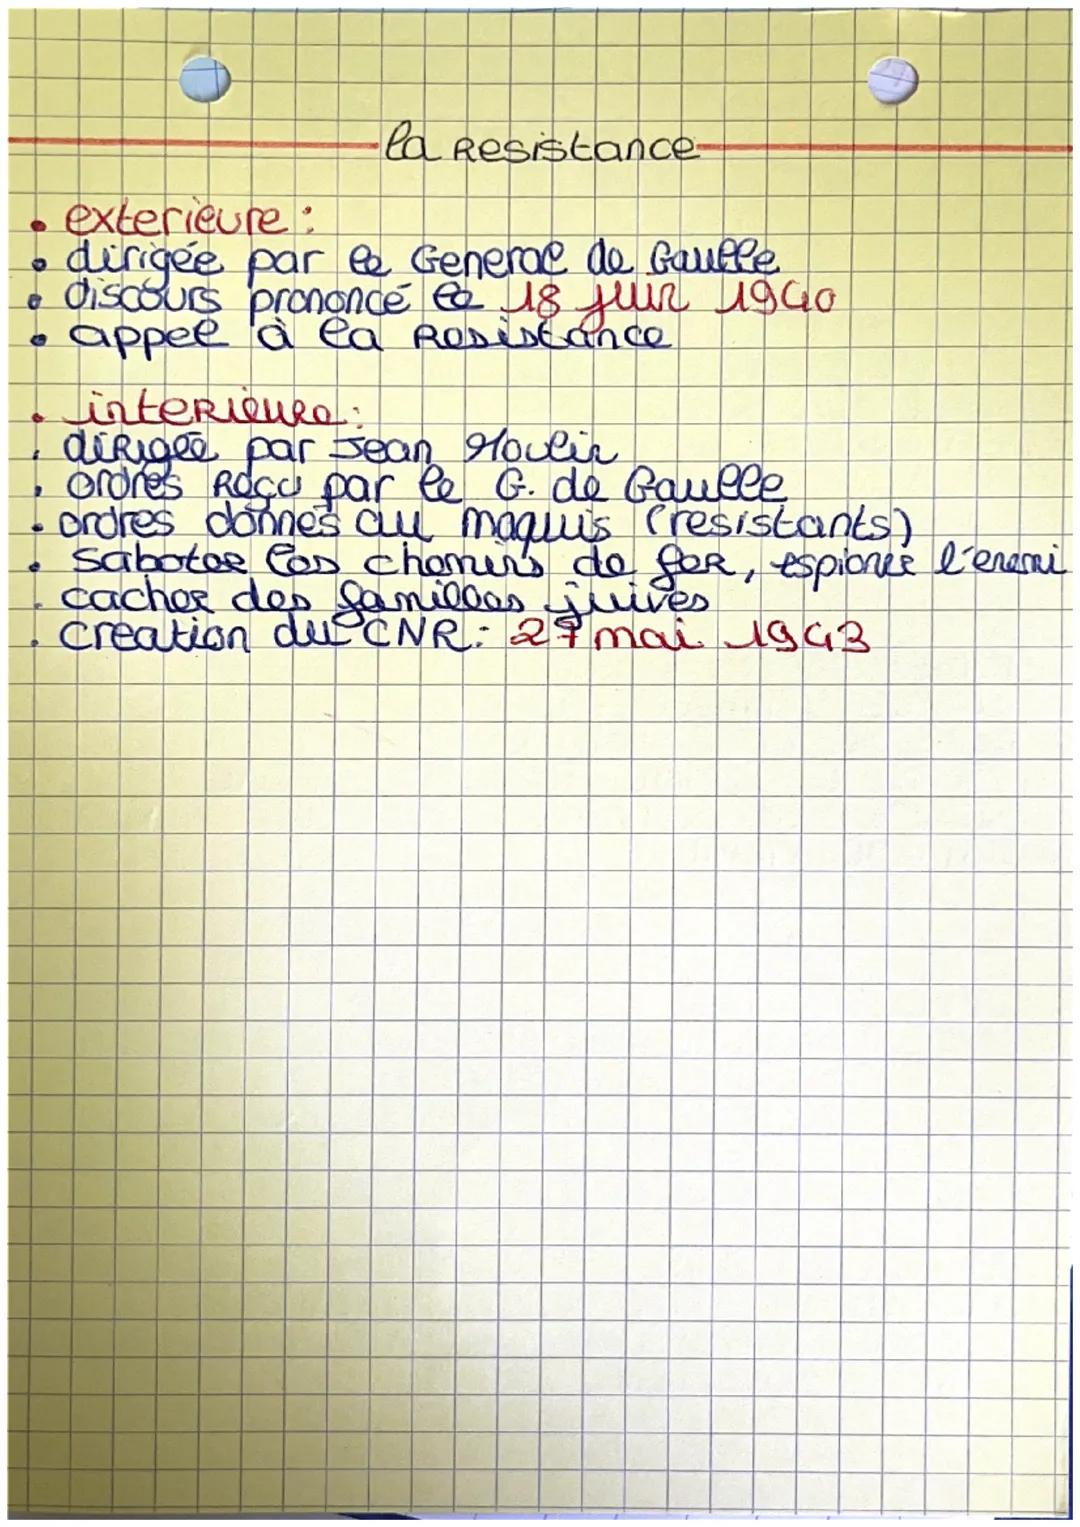 la Resistance
• exterieure :
• dirigée par le General de Gaulle
• discours prononcé le 18 juin 1940
• appel à la Resistance
• interieure :
• dirigée par Jean Moulin
• ordres Reçu par le G. de Gaulle
• ordres donnés au maquis (resistants)
• saboter les chemins de fer, espionner l'enemi
• cacher des familles juives
• creation du CNR : 27 mai 1943